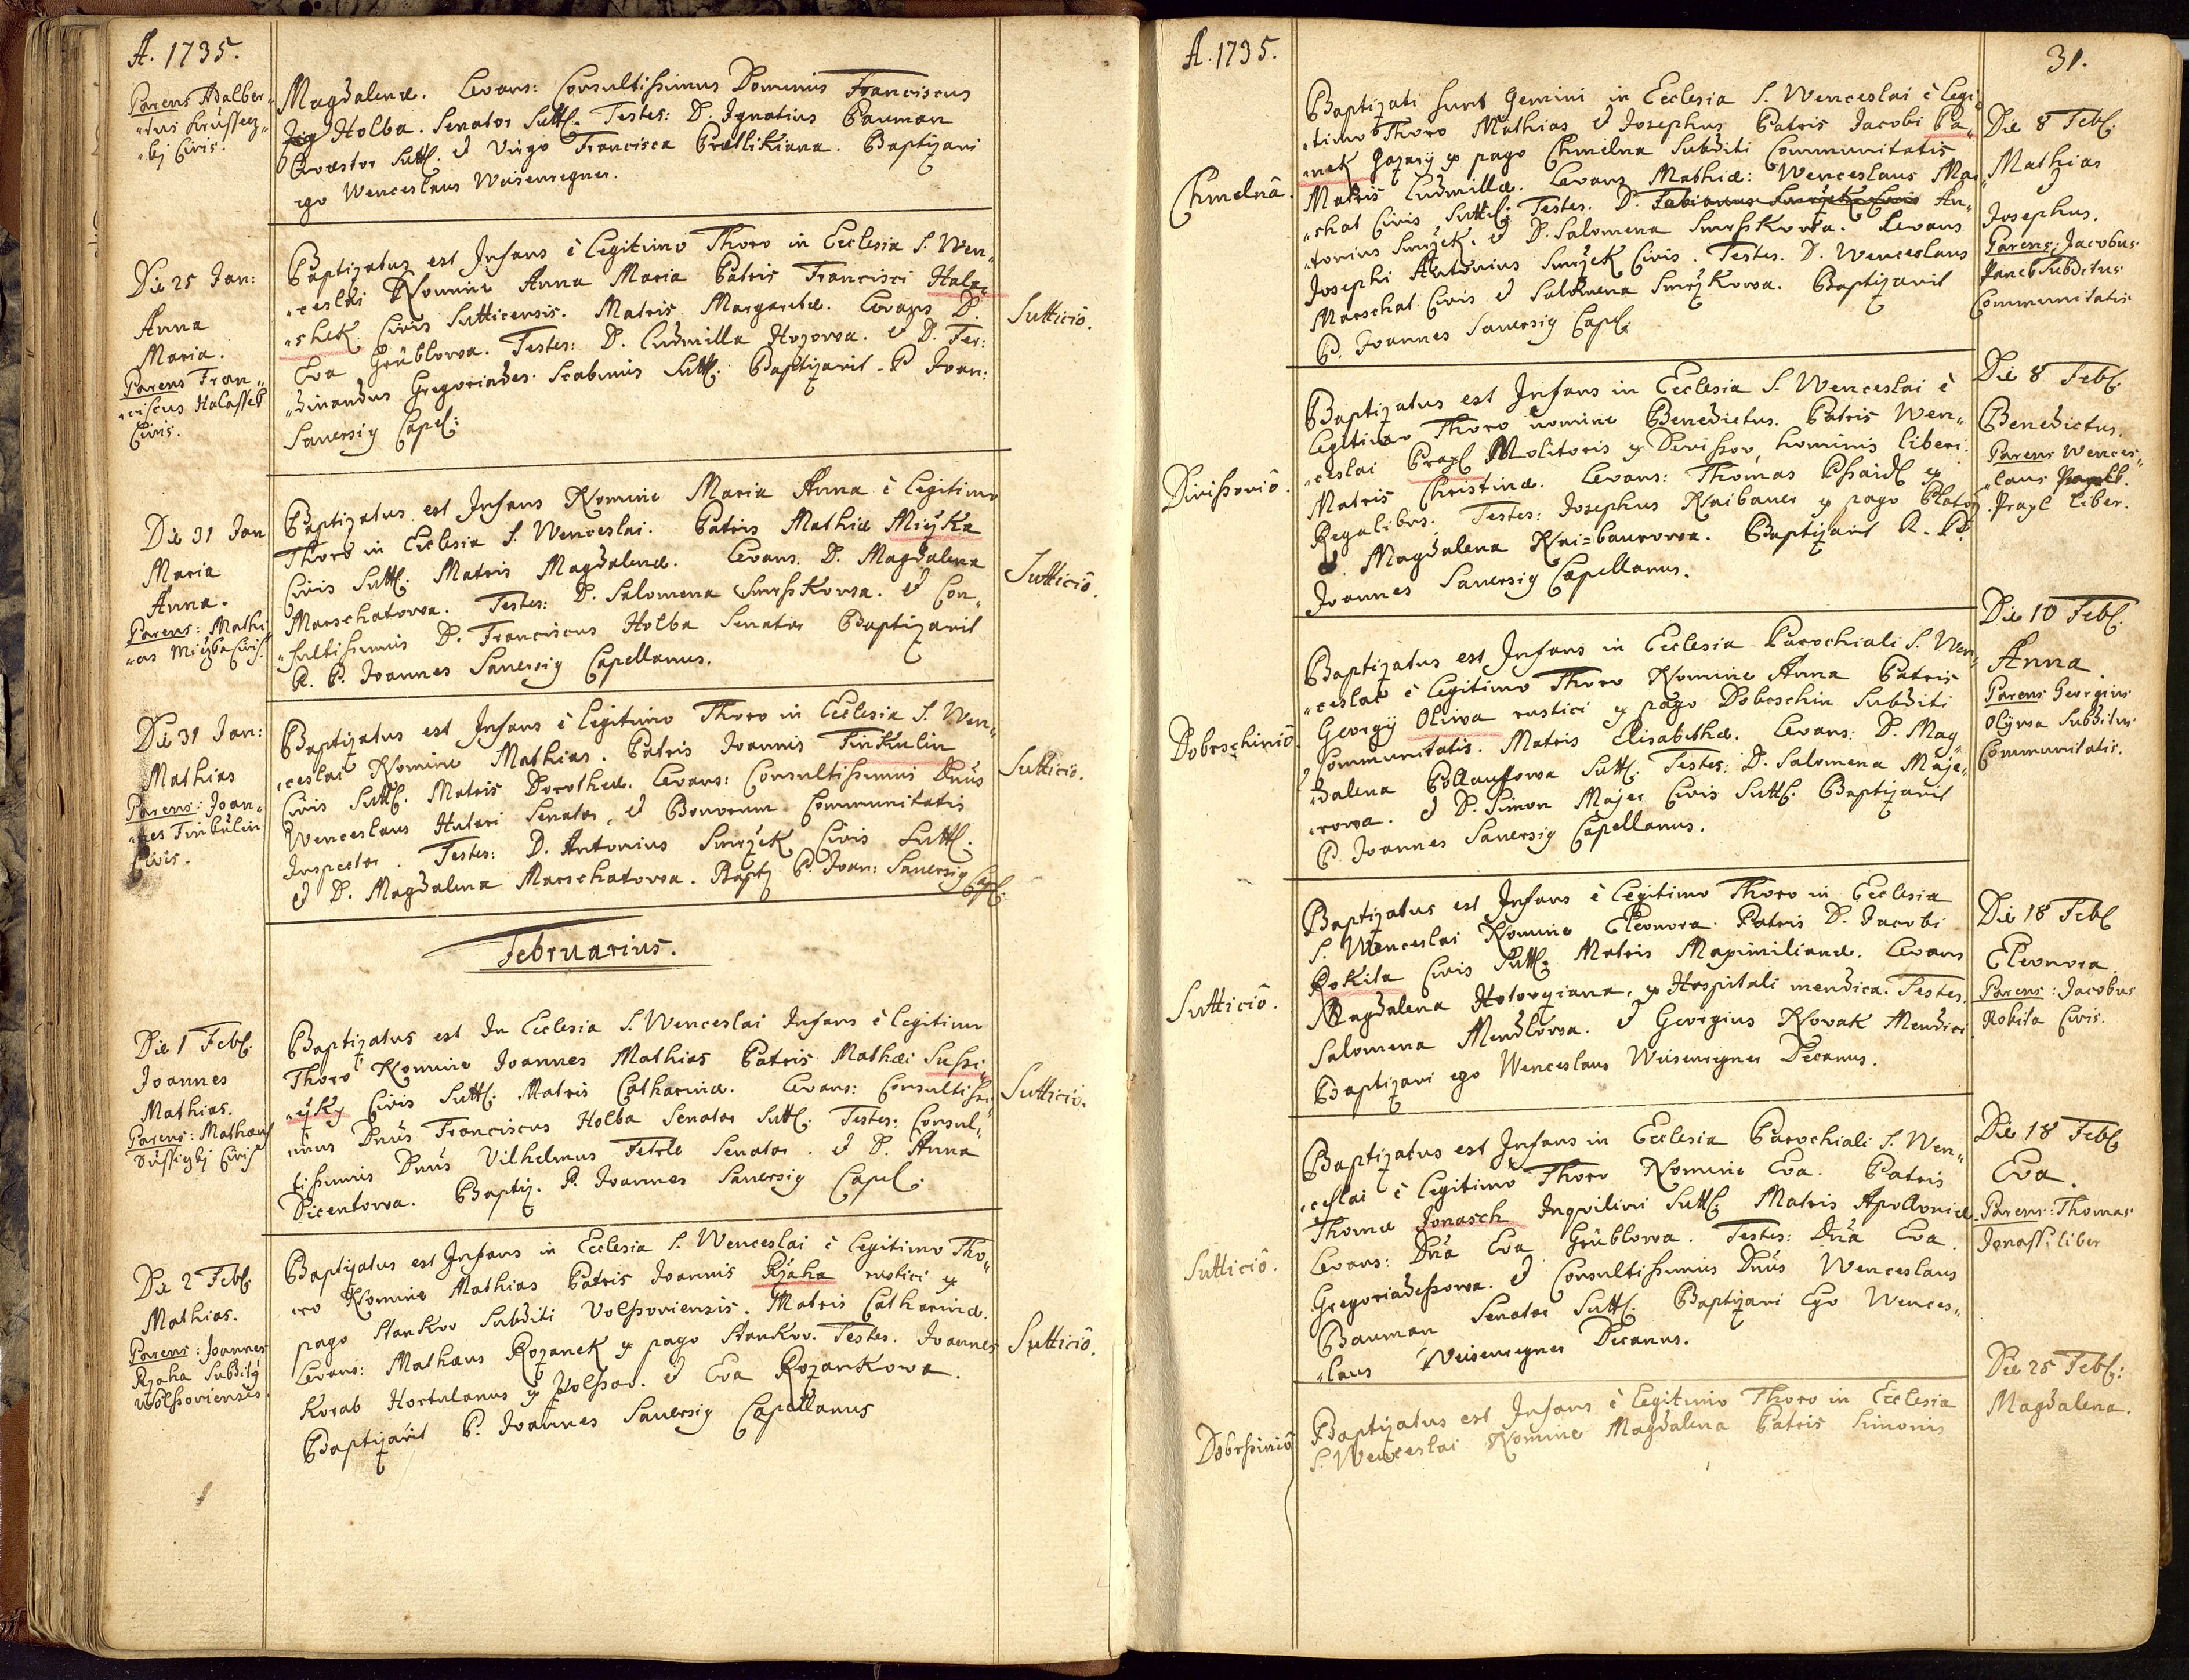 A. 1735.
Parens Adalber„
„tus
„kj Civis.
Magdalenæ. Levans: Consultissimus Dominus Franciscus
Holba. Senator Sutt: Testes: D. Ignatius Bauman
Quæstor Sutt: et Virgo Francisca Prætlikiana. Baptizavi
ego Wenceslaus Weisenregner.
Die 25 Jan:
Anna
Maria.
Parens Fran„
„ciscus Halassek
Civis.
Baptizatus est Infans è legitimo Thoro in Ecclesia S. Wen„
„ceslai Nomine Anna Maria Patris Francisci Hala„
„shek Civis Sutticensis. Matris Margarethæ. Levans D.
Eva Grüblowa. Testes: D. Ludmilla Hozowa. et D. Fer:
„dinandus Gregoriades Scabinus Sutt: Baptizavit P Joan:
Sauersig Capel:
Sutticiô.
Die 31 Jan
Maria
Anna.
Parens: Mathi
„as Miczka Civis
Baptizatus est Infans Nomine Maria Anna è legitimo
Thoro in Ecclesia S. Wenceslai. Patris Mathiæ Miczka
Civis Sutt: Matris Magdalenæ. Levans. D. Magdalena
Marschatowa. Testes: D. Salomena Smrsskowa. et Con„
„sultissimus D. Franciscus Holba Senator Baptizavit
R. P. Joannes Sauersig Capellanus.
Sutticiô.
Die 31 Jan:
Mathias
Parens: Joan„
„nes Tinkulin
Civis.
Baptizatus est Infans è legitimo Thoro in Ecclesia S. Wen„
„ceslai Nomine Mathias. Patris Joannis Tinkulin
Civis Sutt: Matris Dorotheæ. Levans: Consultissimus Dnus
Wenceslaus Hutari Senator, et Bonorum Communitatis
Inspector. Testes: D. Antonius Smrzek Civis Sutt:
et D. Magdalena Marschatowa. Baptz P. Joan: Sauersig Capel:
Sutticiô.
Februarius.
Die 1 Feb:
Joannes
Mathias.
Parens: Mathæus
Sussiczkj Civis
Baptizatus est In Ecclesia S. Wenceslai Infans è legitimo
Thoro Nomine Joannes Mathias Patris Mathæi Sussi„
„czky Civis Sutt: Matris Catharinæ. Levans: Consultissi„
„mus Dnus Franciscus Holba Senator Sutt: Testes: Consul„
tissimus Dnus Vilhelmus Fetrle Senator. et D. Anna
Dicentowa. Baptiz. P. Joannes Sauersig Capel:
Sutticiô.
Die 2 Feb:
Mathias.
Parens: Joannes
Rzaha Subditq
Wolssoviensis.
Baptizatus est Infans in Ecclesia S. Wenceslai è legitimo Tho„
ro Nomine Mathias Patris Joannis Rzaha rustici ex
pago Stankov Subditi Volssoviensis. Matris Catharinæ.
Levans: Mathæus Rozanek ex pago Stankov. Testes. Joannes
Korab Hortulanus ex Volssov. et Eva Rozankowa.
Baptizavit P. Joannes Sauersig Capellanus
Sutticiô.
A. 1735.
31.
Chmelnâ.
Baptizati sunt Gemini in Ecclesia S. Wenceslai è Legi„
„timo Thoro Mathias et Josephus Patris Jacobi Pa„
„nek ex pago Chmelna Subditi Communitatis
Matris Ludmillæ. Levans Mathiæ: Wenceslaus Mar
„schat Civis Sutt: Testes. D. An„
„tonius Smrzek. et D. Salomena Smrsskowa. Levans
Josephi Antonius Smrzek Civis. Testes. D. Wenceslaus
Marschat Civis et Salomena Smrzkowa. Baptizavit
P. Joannes Sauersig Capel:
Die 8 Feb:
Mathias
Josephus.
Parens: Jacobus
Panek Subditus
Communitatis
Divissoviô.
Baptizatus est Infans in Ecclesia S. Wenceslai è
legitimo Thoro nomine Benedictus. Patris Wen„
„ceslai Prayl Molitoris ex Divissov, hominis liberi.
Matris Christinæ. Levans: Thomas ex
Regalibus. Testes: Josephus Naibauer ex pago
et Magdalena Nai=baurowa. Baptizavit R. P.
Joannes Sauersig Capellanus.
Die 8 Feb:
Benedictus.
Parens Wences„
„laus
Prayl liber.
Dobrschiniô.
Baptizatus est Infans in Ecclesia Parochiali S. Wen„
„ceslai è legitimo Thoro Nomine Anna Patris
Georgij Oliwa rustici ex pago Dobrschin Subditi
Communitatis. Matris Elisabethæ. Levans: D. Mag„
„dalena Sutt: Testes: D. Salomena Maje„
„rowa. et D. Simon Majer Civis Sutt: Baptizavit
P. Joannes Sauersig Capellanus.
Die 10 Feb:
Anna
Parens Georgius
Olÿwa Subditus
Communitatis.
Sutticiô.
Baptizatus est Infans è Legitimo Thoro in Ecclesia
S. Wenceslai Nomine Eleonora Patris D. Jacobi
Rokita Civis Sutt: Matris Maximilianæ. Levans
Magdalena ex Hospitali mendica. Testes.
Salomena Mendlowa. et Georgius Novak Mendici
Baptizavi ego Wenceslaus Weisenregner Decanus.
Die 18 Feb:
Eleonora.
Parens: Jacobus
Rokita Civis.
Sutticiô.
Baptizatus est Infans in Ecclesia Parochiali S. Wen„
„ceslai è legitimo Thoro Nomine Eva. Patris
Thomæ Jonasch Inquilini Sutt: Matris Apolloniæ.
Levans: Dna Eva Grüblowa. Testes: Dna Eva
Gregoriadessowa. et Consultissimus Dnus Wenceslaus
Bauman Senator Sutt: Baptizavi Ego Wences„
„laus Weisenregner Decanus.
Die 18 Feb:
Eva.
Parens: Thomas
Jonass. liber
Dobrssiniô
Baptizatus est Infans è legitimo Thoro in Ecclesia
S. Wenceslai Nomine Magdalena Patris Simonis
Die 25 Feb:
Magdalena.